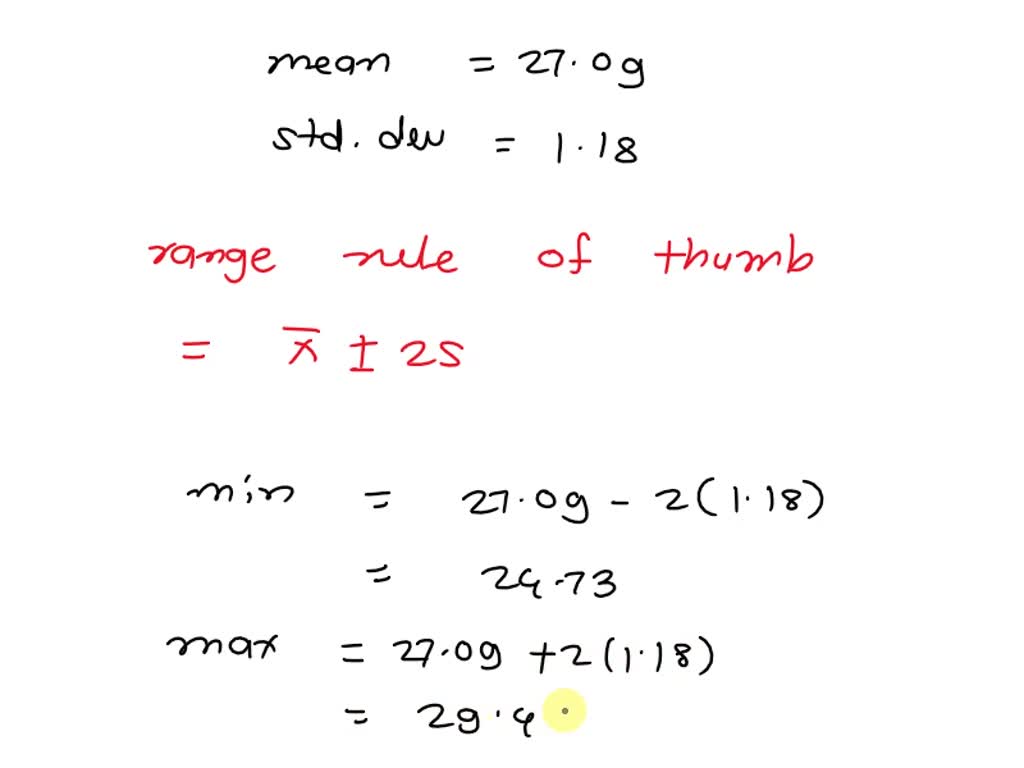 mean = 27.09
std. dev = 1.18
range rule of thumb
= x̅ ± 2s
min = 27.09 - 2(1.18)
= 24.73
max = 27.09 + 2(1.18)
= 29.4